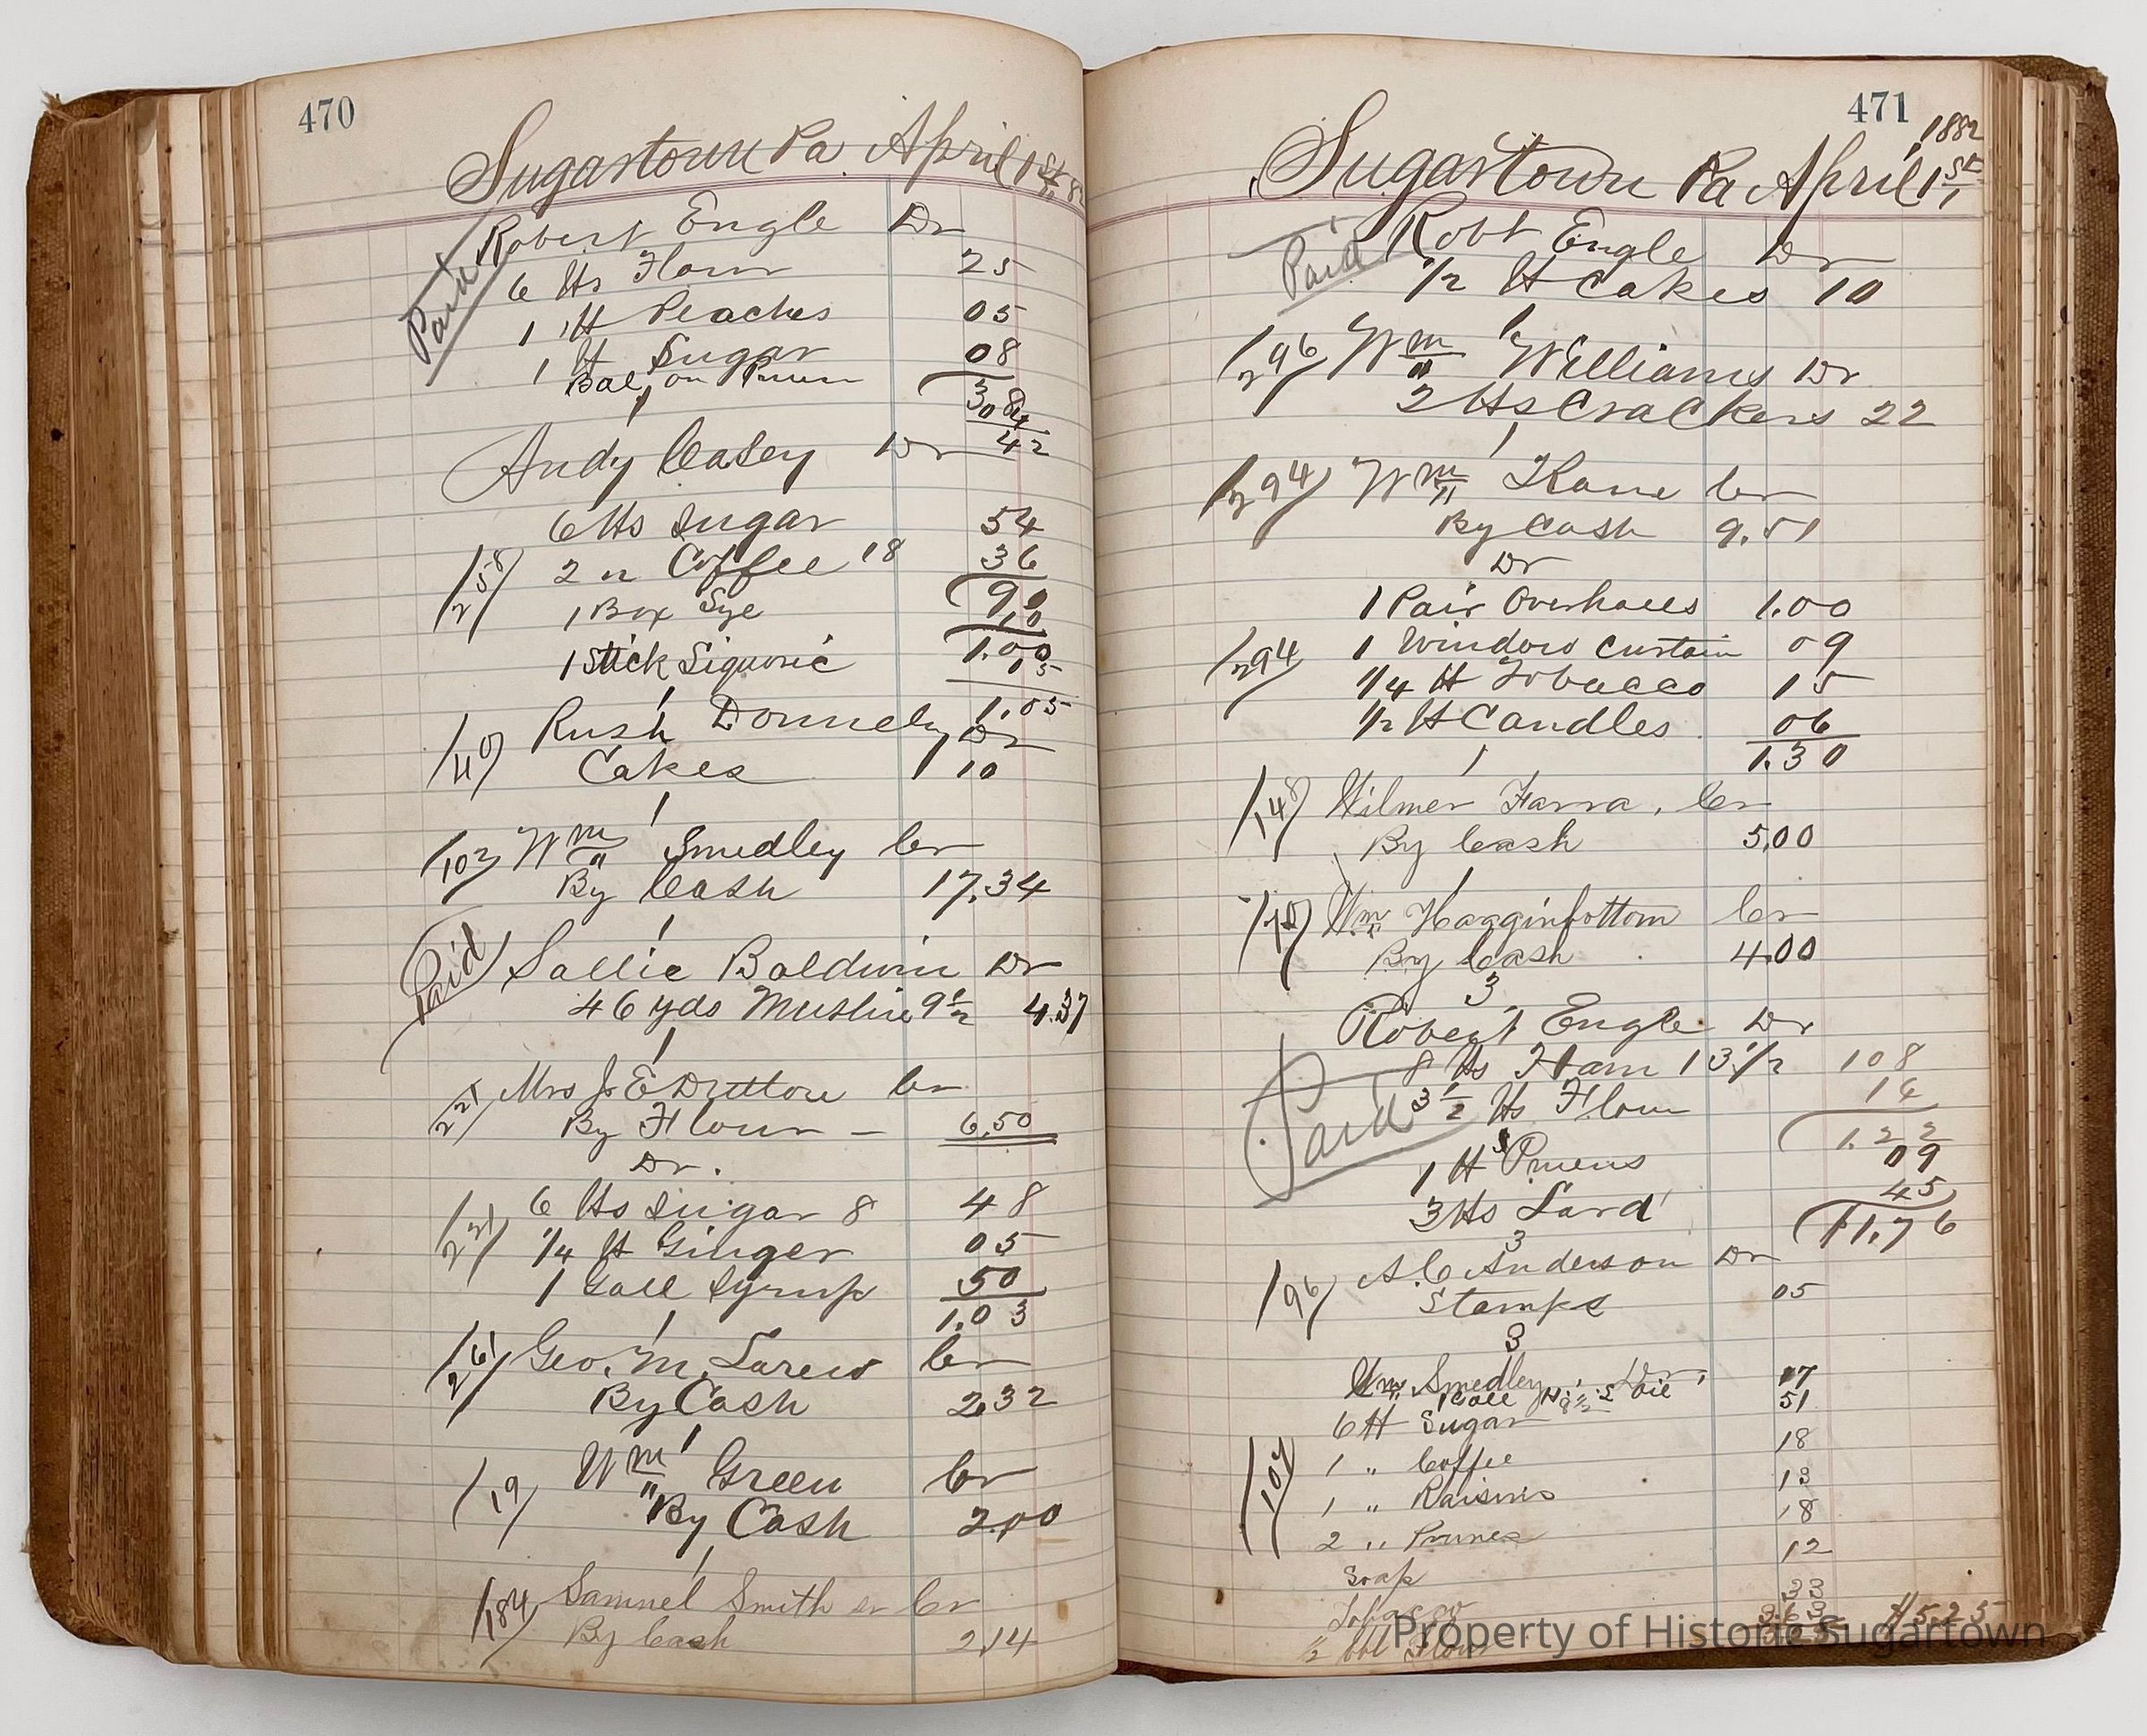 470
Sugartown Pa April 1st
Paid
Robert Engle Dr
6 lbs Flour 25
1 lb Peaches 05
1 lb Sugar 08
Bal, on
42
1
Andy Casey Dr
6 lbs Sugar 54
258
2 " Coffee 18 36
90
1 Box 10
1.00
1 Stick 05
1.05
1
40 Rush Donnely Dr
Cakes 10
1
102 Wm Smedley Cr
By Cash 17.34
1
Paid Sallie Baldwin Dr
46 yds Muslin 9 1/2 4.37
1
221 Mrs J E Dutton Cr
By Flour — 6.50
Dr.
221
6 lbs Sugar 8 48
1/4 lb Ginger 05
1 Gall Syrup 50
1.03
1
261 Geo. M. Larew Cr
By Cash 2.32
1
19 Wm Green Cr
By Cash 2.00
1
184 Samuel Smith sr Cr
By Cash 2.14
471
Sugartown Pa April 1st 1882
1
Paid Robt Engle Dr
1/2 lb Cakes 10
1
296 Wm Williams Dr
2 lbs Crackers 22
1
294 Wm Kane Cr
By Cash 9.51
Dr
1 Pair Overhalls 1.00
294 1 Window Curtain 09
1/4 lb Tobacco 15
1/2 lb Candles 06
1.30
1
148 Wilmer Farra, Cr
By Cash 5.00
1
Wm Hagginbottom Cr
By Cash 4.00
3
Robert Engle Dr
Paid
8 lbs Ham 13 1/2 108
3 1/2 lbs Flour 14
1.22
1 lb Pruens 09
3 lbs Lard 45
1.76
3
96 A. C. Anderson Dr
Stamps 05
3
Wm Smedley Dr
Coal Oil 17
6 lb Sugar 51
104
1 " Coffee 18
1 " Raisins 13
2 " Prunes 18
Soap 12
Tobacco
1/2 bbl Flour
5.25
Property of Historic Sugartown